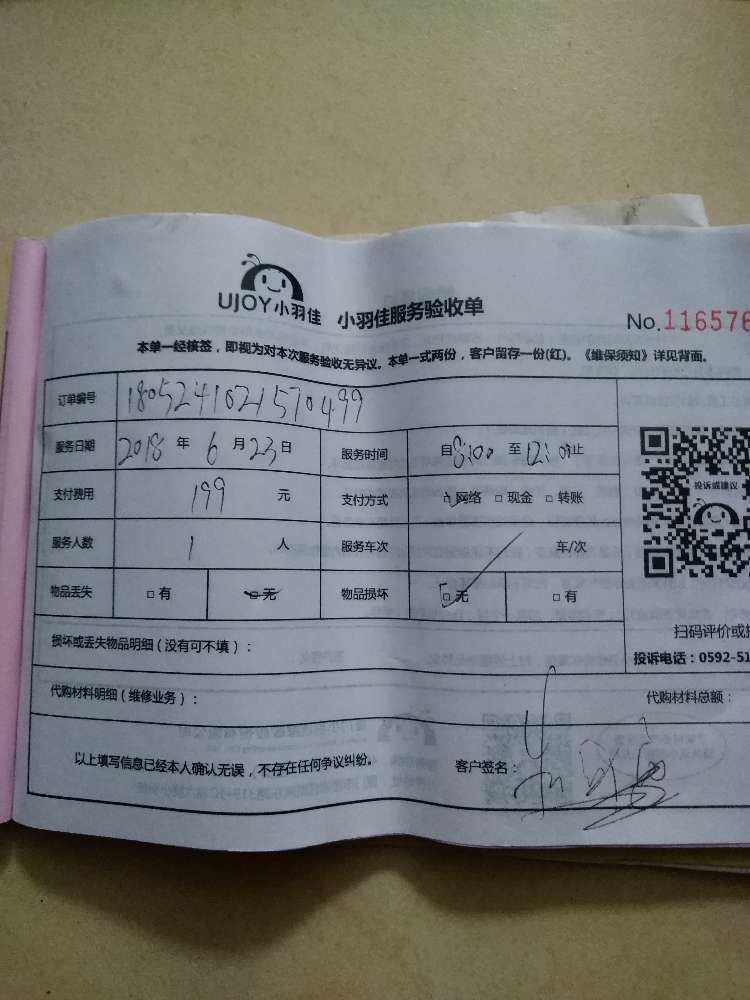 UJOY小羽佳 小羽佳服务验收单
No.116576
本单一经核签，即视为对本次服务验收无异议。本单一式两份，客户留存一份(红)。《维保须知》详见背面。
订单编号 1805241021570499
服务日期 2018 年 6 月 23 日 服务时间 自8:00 至 12:00止
支付费用 199 元 支付方式 □网络 □现金 □转账
投诉或建议
服务人数 1 人 服务车次 车/次
物品丢失 □有 □无 物品损坏 □无 □有
扫码评价或
损坏或丢失物品明细（没有可不填）：
投诉电话：0592-51
代购材料明细（维修业务）：
代购材料总额：
以上填写信息已经本人确认无误，不存在任何争议纠纷。 客户签名：